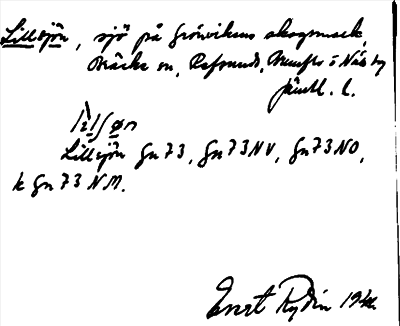 Lillsjön, sjö på Grönvikens skogsmark,
Bräcke sn, Refsunds,
Jämtl. l.
Lillsjön Gn 73, Gn 73 NV, Gn 73 NO,
k Gn 73 NM.
Ernst Rydin 1942